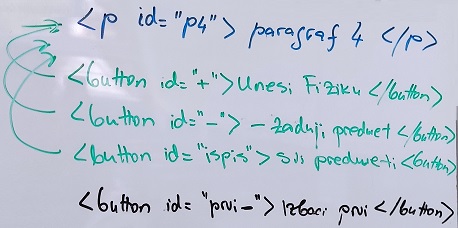 <p id="p4"> paragraf 4 </p>
<button id="+">Unesi Fiziku</button>
<button id="-"> - zadnji predmet </button>
<button id="ispis"> svi predmeti <button>
<button id="prvi-"> Izbaci prvi </button>